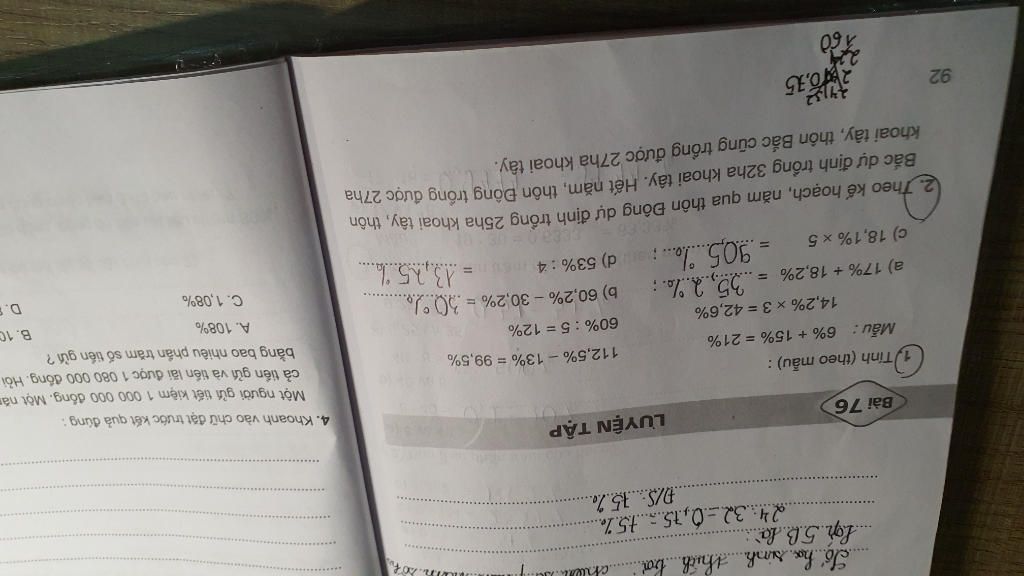 24 : 32 = 0,75 = 75%
Đ/S : 75%
Bài 76
LUYỆN TẬP
1. Tính (theo mẫu) :
Mẫu : 6% + 15% = 21%
112,5% – 13% = 99,5%
14,2% × 3 = 42,6%
60% : 5 = 12%
a) 17% + 18,2% = 35,2% ;
b) 60,2% – 30,2% = 30%
c) 18,1% × 5 = 90,5% ;
d) 53% : 4 = 13,25%
2. Theo kế hoạch, năm qua thôn Đông dự định trồng 25ha khoai tây, thôn
Bắc dự định trồng 32ha khoai tây. Hết năm, thôn Đông trồng được 27ha
khoai tây, thôn Bắc cũng trồng được 27ha khoai tây.
0,75
160
92
4. Khoanh vào chữ đặt trước kết quả đúng :
Một người gửi tiết kiệm 1 000 000 đồng. Một
cả tiền gửi và tiền lãi được 1 080 000 đồng. Hỏi
bằng bao nhiêu phần trăm số tiền gửi ?
A. 108%
B. 10
C. 1,08%
D.